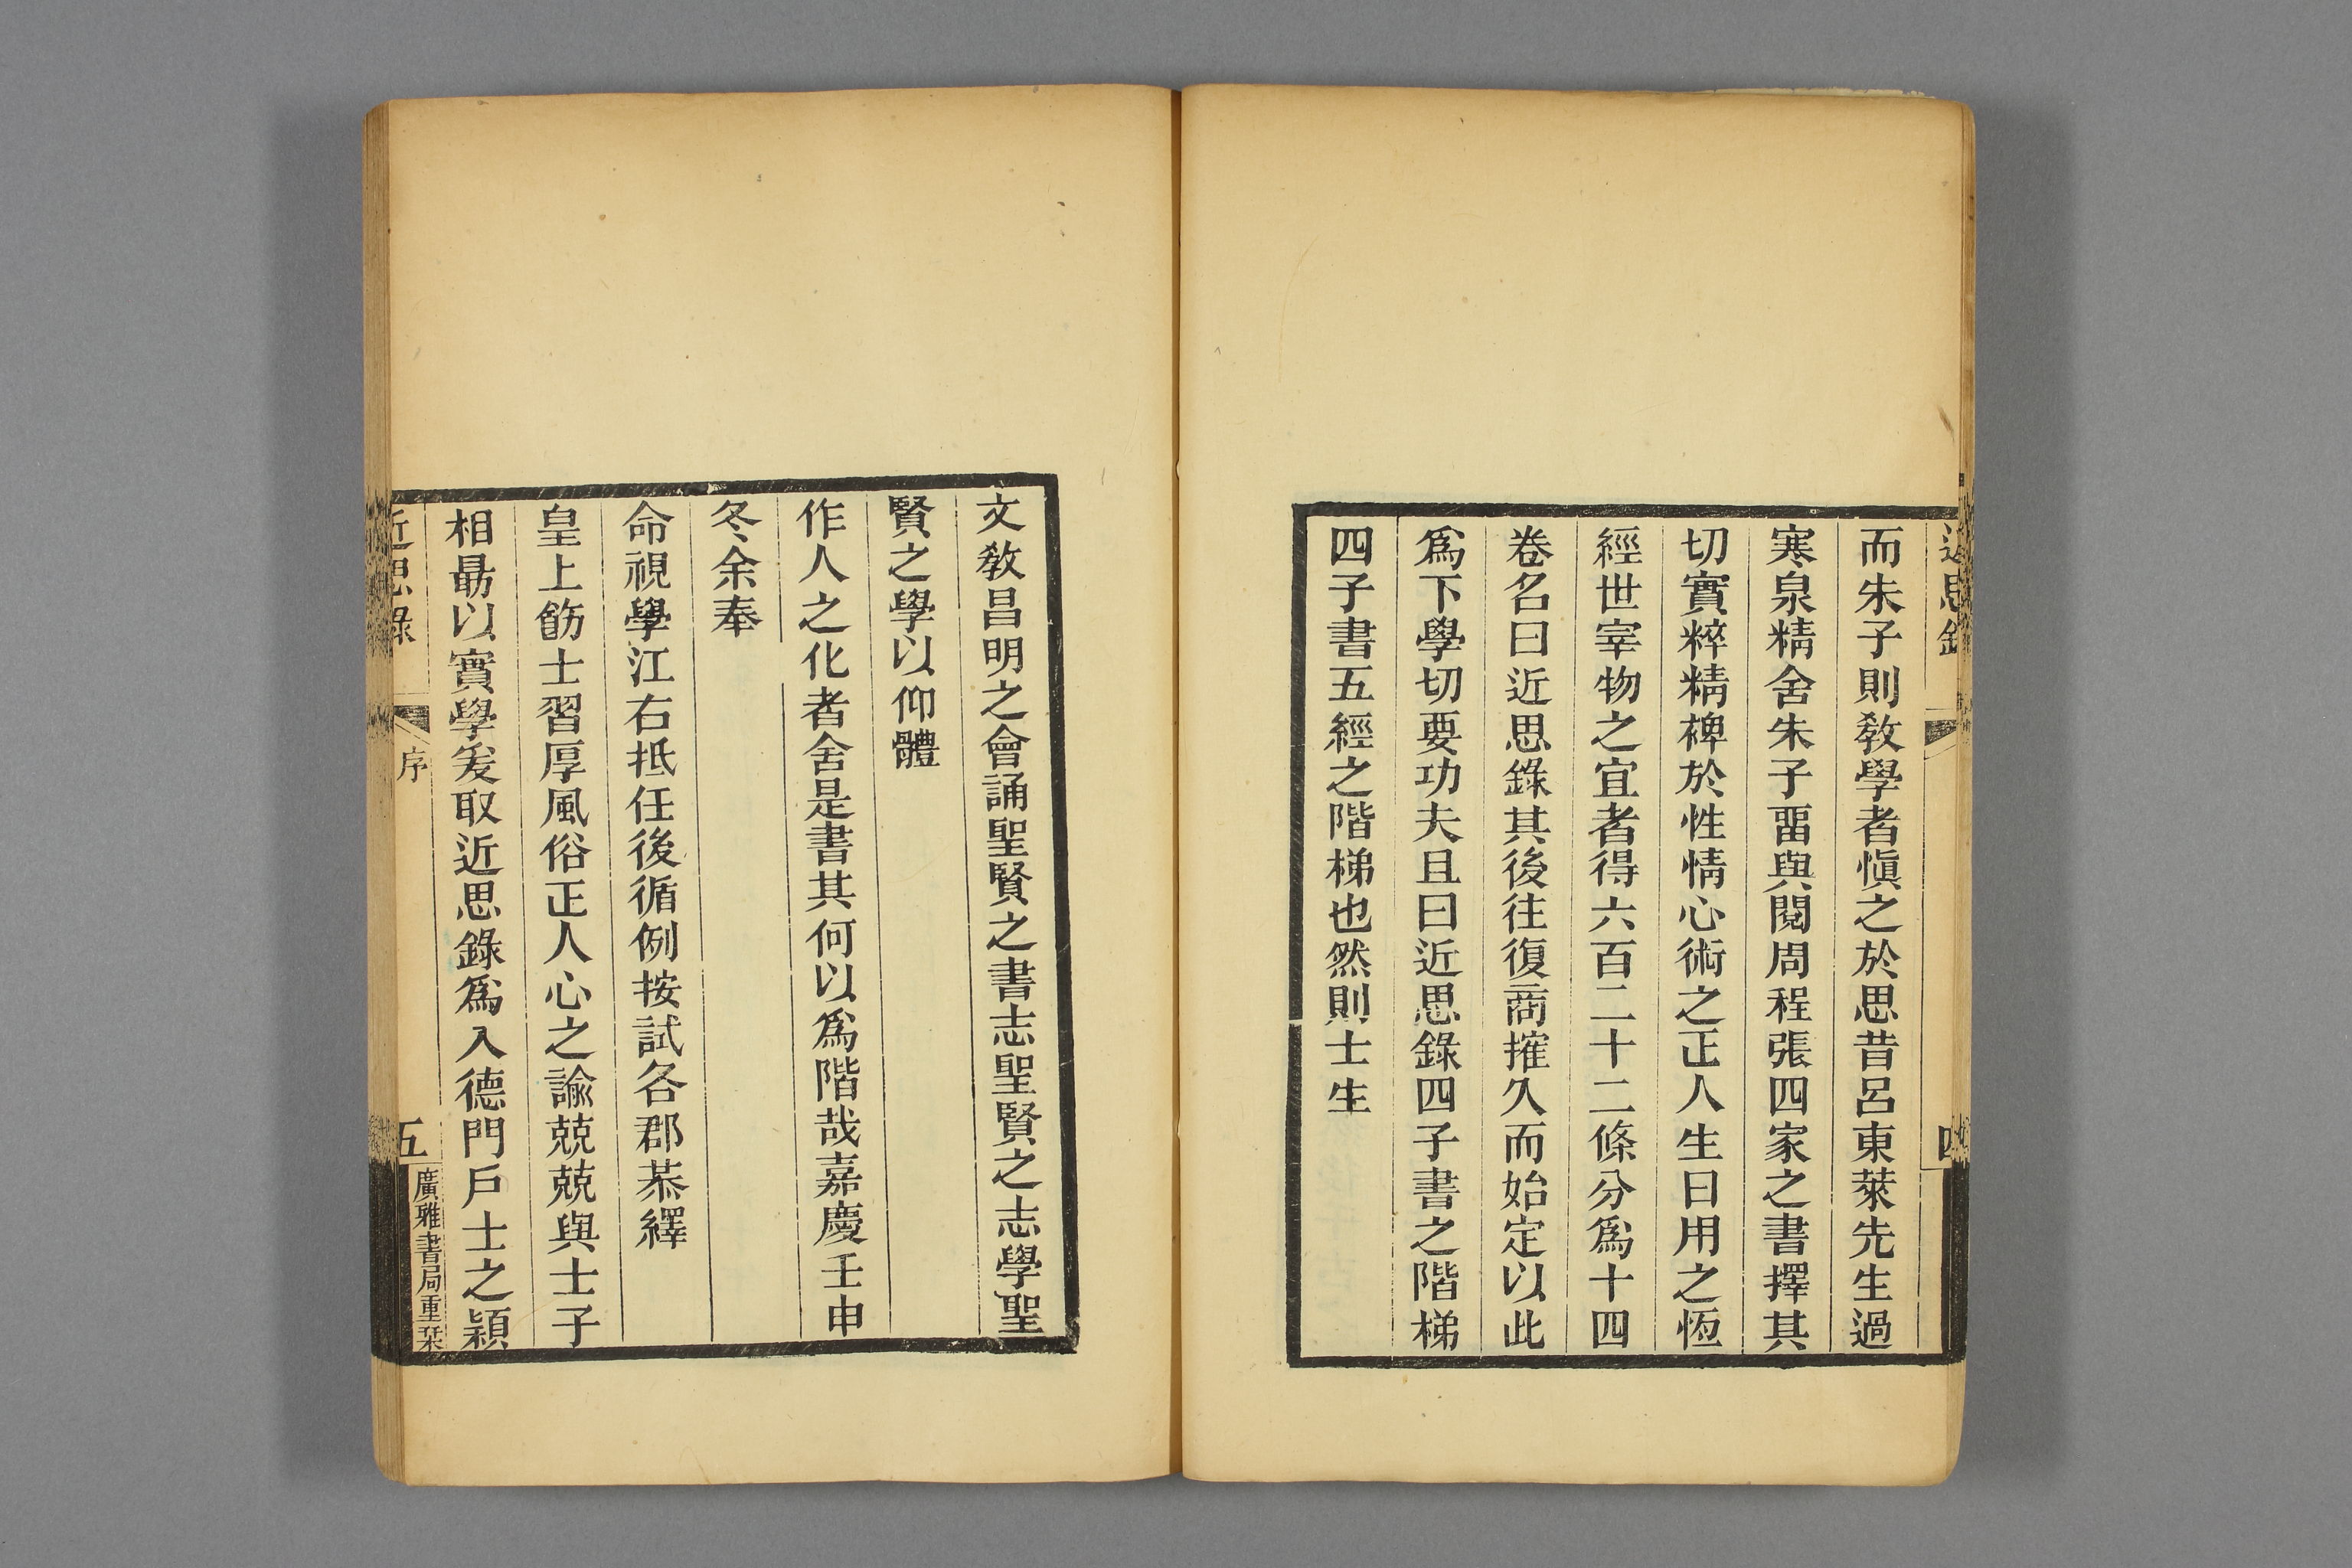 近思錄
四
而朱子則敎學者愼之於思昔呂東萊先生過
寒泉精舍朱子畱與閱周程張四家之書擇其
切實粹精裨於性情心術之正人生日用之恆
經世宰物之宜者得六百二十二條分爲十四
卷名曰近思錄其後往復商搉久而始定以此
爲下學切要功夫且曰近思錄四子書之階梯
四子書五經之階梯也然則士生
文敎昌明之會誦聖賢之書志聖賢之志學聖
賢之學以仰體
作人之化者舍是書其何以爲階哉嘉慶壬申
冬余奉
命視學江右抵任後循例按試各郡恭繹
皇上飭士習厚風俗正人心之諭兢兢與士子
相勗以實學爰取近思錄爲入德門戶士之穎
近思錄
序
五
廣雅書局重栞